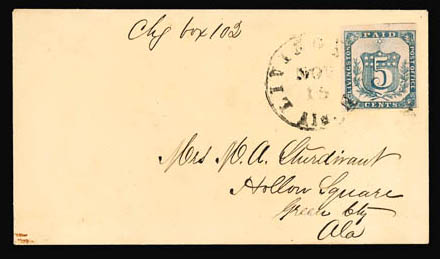 Chg box 102
LIVINGSTON
NOV
15
PAID
LIVINGSTON
POST OFFICE
5
CENTS
Mrs M. A. Sturdivant
Hollow Square
Green Cty
Ala